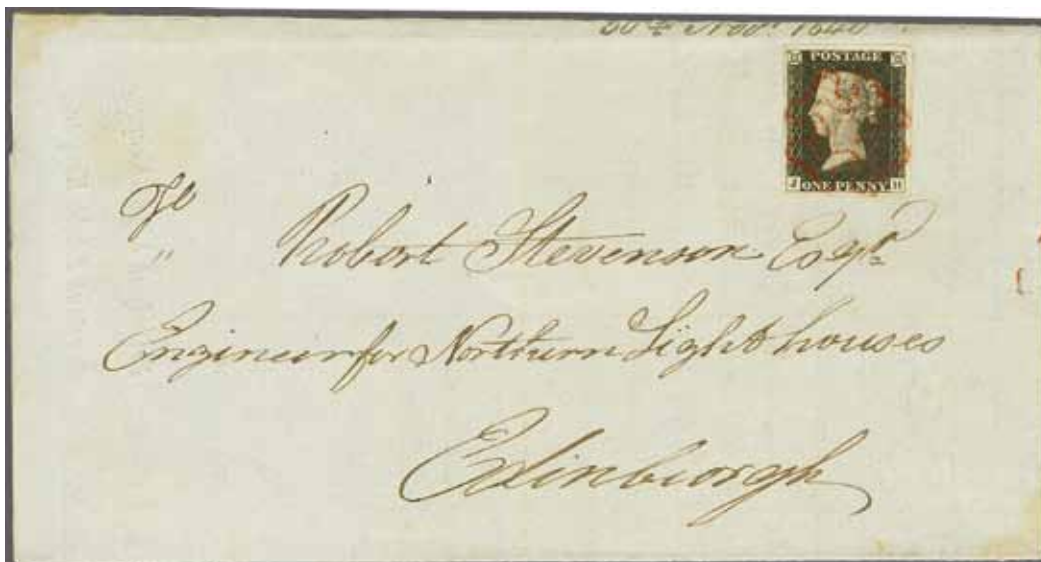 Novr. 1840
POSTAGE
ONE PENNY
To
" Robert Stevenson Esqr.
Engineer for Northern Light houses
Edinburgh